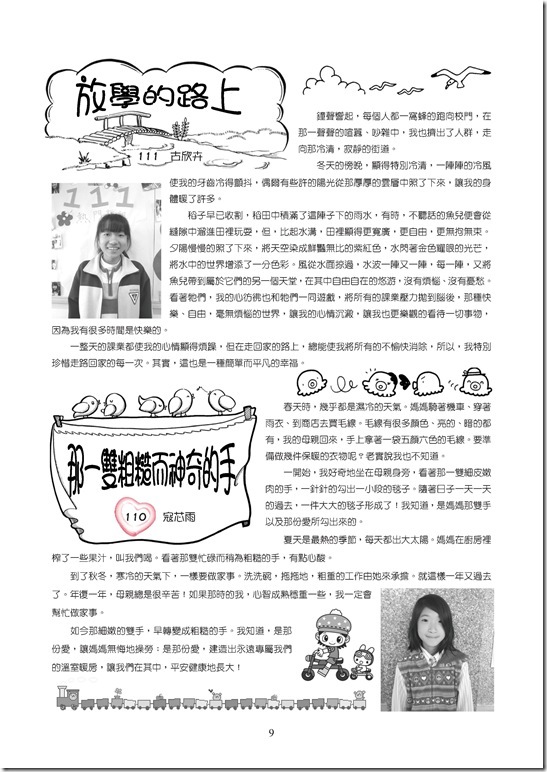 放學的路上
111 古欣卉
鐘聲響起，每個人都一窩蜂的跑向校門，在
那一聲聲的喧囂、吵雜中，我也擠出了人群，走
向那冷清，寂靜的街道。
冬天的傍晚，顯得特別冷清，一陣陣的冷風
使我的牙齒冷得顫抖，偶爾有些許的陽光從那厚厚的雲層中照了下來，讓我的身
體暖了許多。
稻子早已收割，稻田中積滿了這陣子下的雨水，有時，不聽話的魚兒便會從
縫隙中溜進田裡玩耍，但，比起水溝，田裡顯得更寬廣，更自由，更無拘無束。
夕陽慢慢的照了下來，將天空染成鮮豔無比的紫紅色，水閃著金色耀眼的光芒，
將水中的世界增添了一分色彩。風從水面掠過，水波一陣又一陣，每一陣，又將
魚兒帶到屬於它們的另一個天堂，在其中自由自在的悠游，沒有煩惱、沒有憂愁。
看著牠們，我的心彷彿也和牠們一同遊戲，將所有的課業壓力拋到腦後，那種快
樂、自由，毫無煩惱的世界，讓我的心情沉澱，讓我也更樂觀的看待一切事物，
因為我有很多時間是快樂的。
一整天的課業都使我的心情顯得煩躁，但在走回家的路上，總能使我將所有的不愉快消除，所以，我特別
珍惜走路回家的每一次。其實，這也是一種簡單而平凡的幸福。
那一雙粗糙而神奇的手
110 寇芯雨
春天時，幾乎都是濕冷的天氣。媽媽騎著機車、穿著
雨衣、到商店去買毛線。毛線有很多顏色、亮的、暗的都
有，我的母親回來，手上拿著一袋五顏六色的毛線。要準
備做幾件保暖的衣物呢？老實說我也不知道。
一開始，我好奇地坐在母親身旁，看著那一雙細皮嫩
肉的手，一針針的勾出一小段的毯子。隨著日子一天一天
的過去，一件大大的毯子形成了！我知道，是媽媽那雙手
以及那份愛所勾出來的。
夏天是最熱的季節，每天都出大太陽。媽媽在廚房裡
榨了一些果汁，叫我們喝。看著那雙忙碌而稍為粗糙的手，有點心酸。
到了秋冬，寒冷的天氣下，一樣要做家事。洗洗碗，拖拖地，粗重的工作由她來承擔。就這樣一年又過去
了。年復一年，母親總是很辛苦！如果那時的我，心智成熟穩重一些，我一定會
幫忙做家事。
如今那細嫩的雙手，早轉變成粗糙的手。我知道，是那
份愛，讓媽媽無悔地操勞：是那份愛，建造出永遠專屬我們
的溫室暖房，讓我們在其中，平安健康地長大！
9